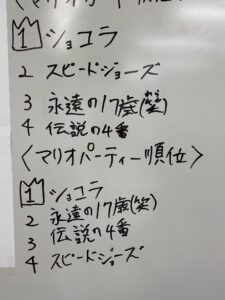 〈マリオカート順位〉
1 ショコラ
2 スピードジョーズ
3 永遠の17歳(笑)
4 伝説の4番
〈マリオパーティー順位〉
1 ショコラ
2 永遠の17歳(笑)
3 伝説の4番
4 スピードジョーズ